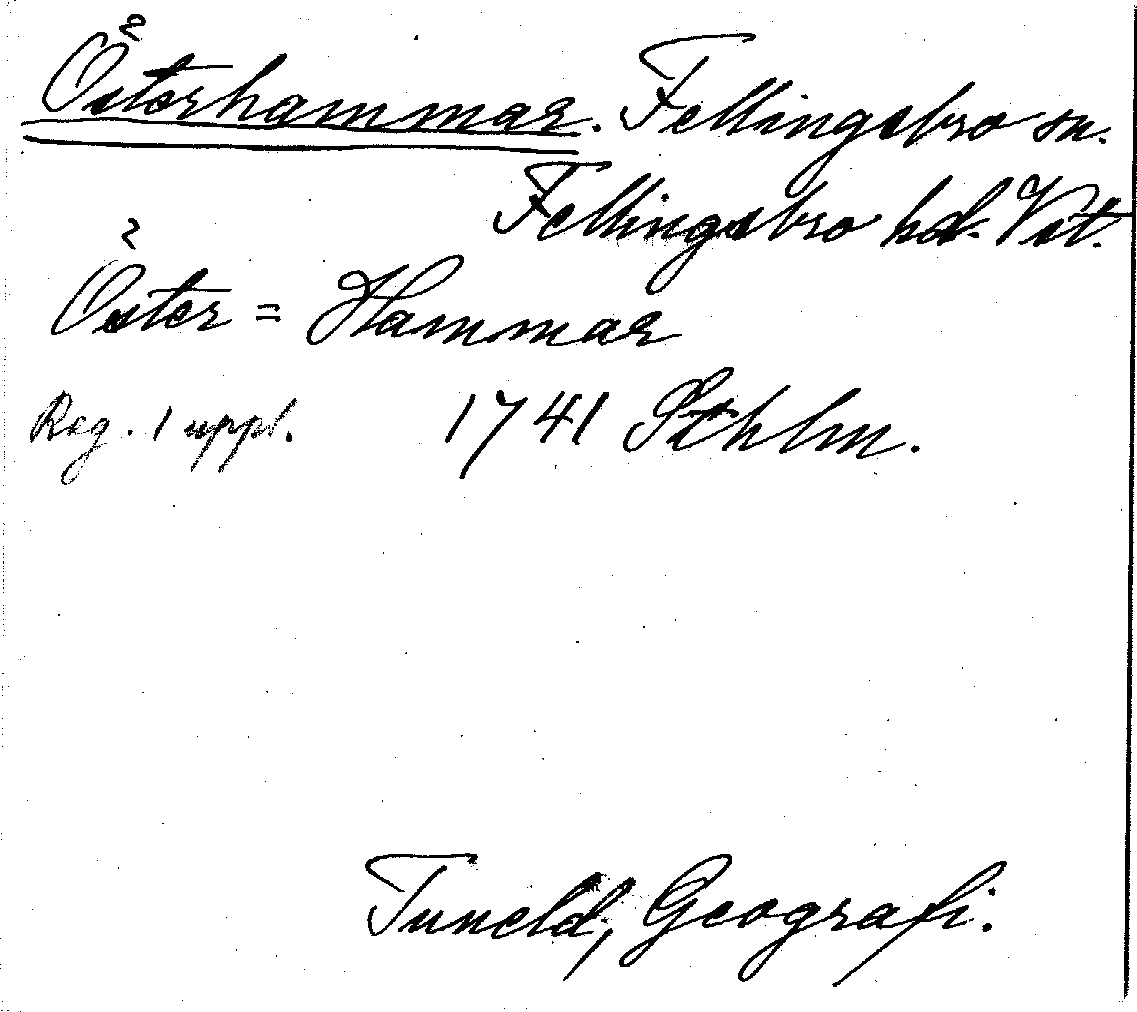 Österhammar. Fellingsbro sn.
Fellingsbro hd. Vst.
Öster = Hammar
Reg. 1 uppl. 1741 Sthlm.
Tuneld, Geografi.